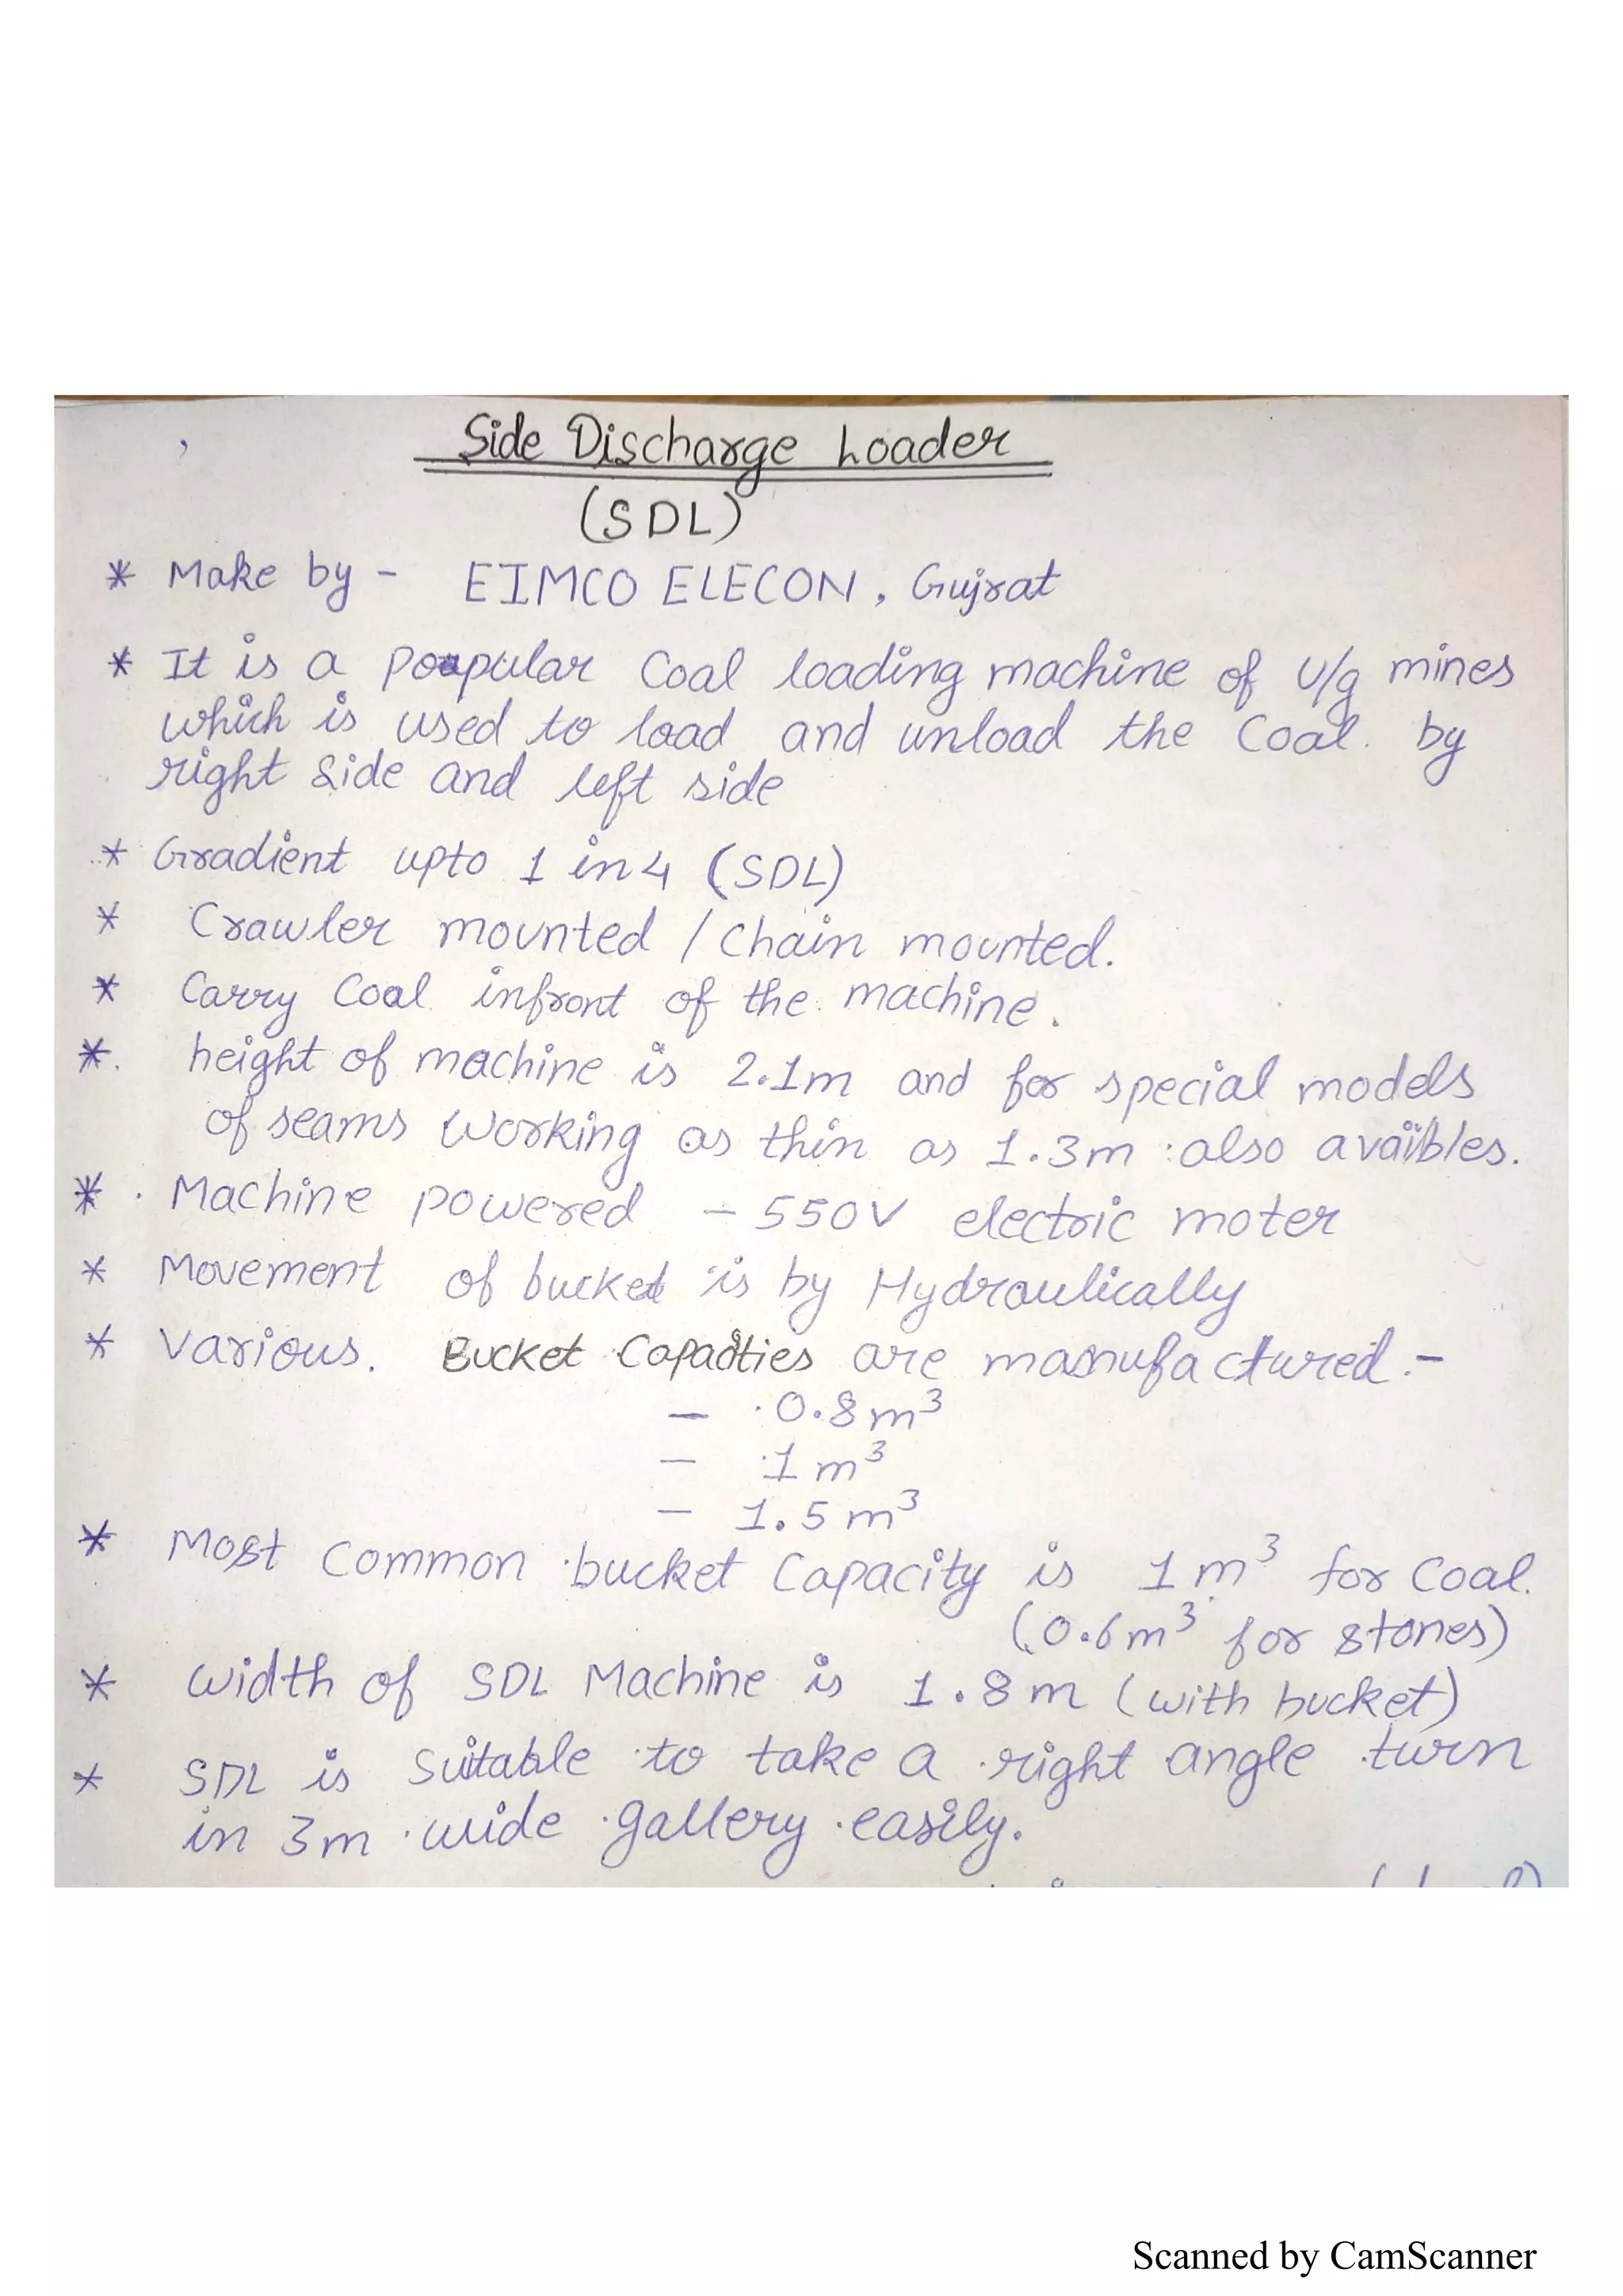 Side Discharge Loader
(SDL)
* Make by - EIMCO ELECON, Gujrat
* It is a popular Coal loading machine of U/g mines
which is used to load and unload the Coal. by
right side and left side
* Gradient upto 1 in 4 (SDL)
* Crawler mounted / Chain mounted.
* Carry Coal infront of the machine.
* height of machine is 2.1m and for special models
of seams working as thin as 1.3m also avaibles.
* Machine powered - 550V electric moter
* Movement of bucket is by Hydraulically
* Various. Bucket Capacities are manufactured.-
- 0.8 m³
- 1 m³
- 1.5 m³
* Most Common bucket Capacity is 1 m³ for Coal.
(0.6 m³ for stones)
* width of SDL Machine is 1.8 m (with bucket)
* SDL is suitable to take a right angle turn
in 3m wide gallery easily.
Scanned by CamScanner